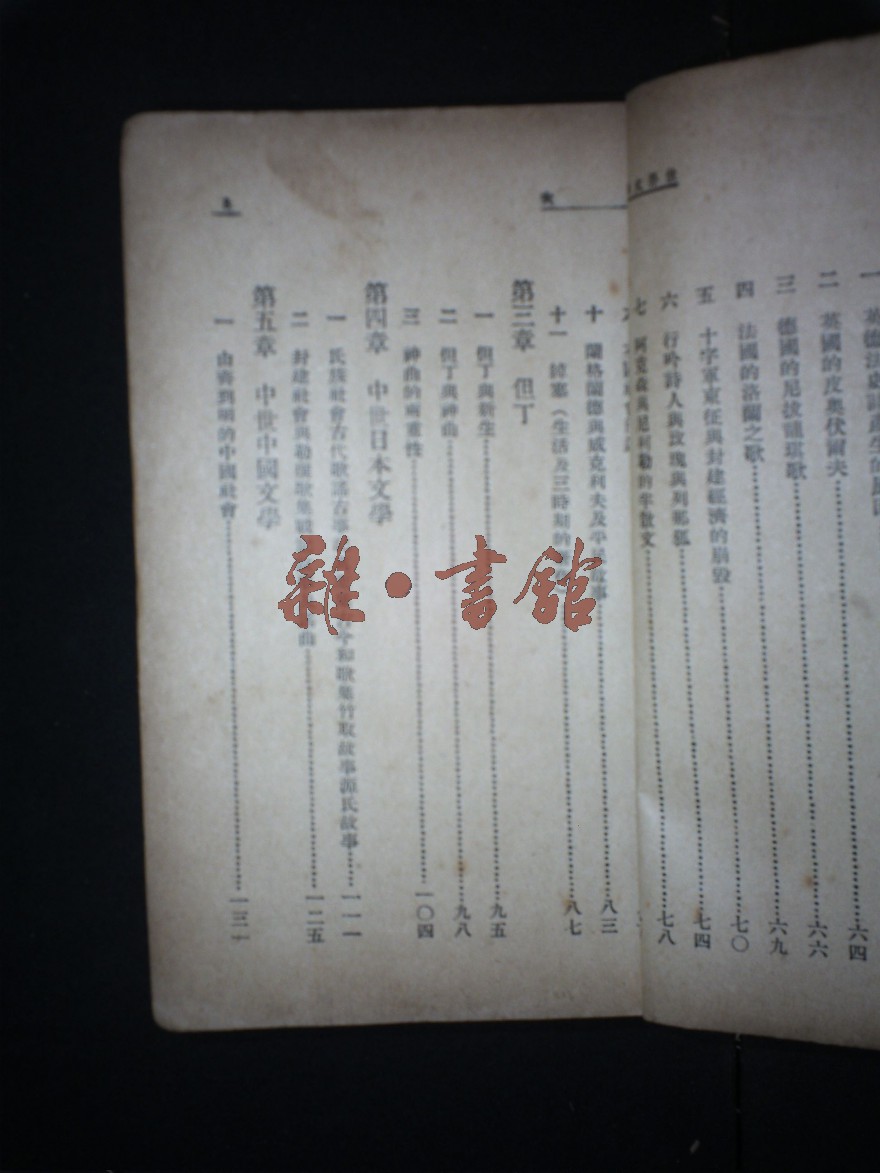 一 英德法史詩產生的原因
二 英國的皮奧伏爾夫……六四
三 德國的尼拔龍琪歌……六六
四 法國的洛蘭之歌……六九
五 十字軍東征與封建經濟的崩毀……七〇
六 行吟詩人與玫瑰與列那狐……七四
七 阿克森與尼利勒的半散文……七八
十 蘭格蘭德與威克利夫及平民故事……八三
十一 綽塞（生活及三時刻的……八七
第三章 但丁
一 但丁與新生……九五
二 但丁與神曲……九八
三 神曲的兩重性……一〇四
第四章 中世日本文學
一 氏族社會古代歌謠古事 和歌集竹取故事源氏故事……一一一
二 封建社會與 歌集 曲……一二五
第五章 中世中國文學
一 由 到明的中國社會……一三一
雜·書館